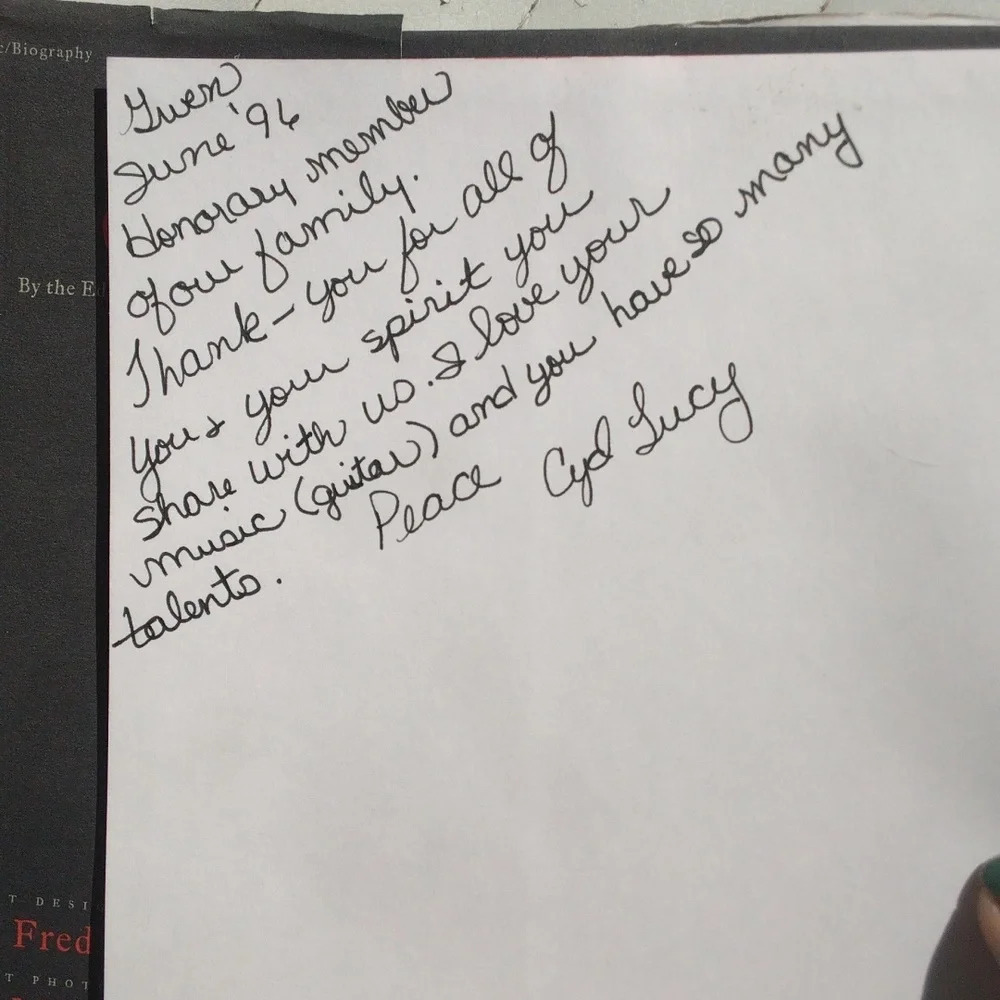 c/Biography
By the E
T DESI
Fred
T PHOT
Gwen
June '96
Honorary member
of our family.
Thank-you for all of
you & your spirit you
share with us. I love your
music (guitar) and you have so many
talents.
Peace Cyd Lucy